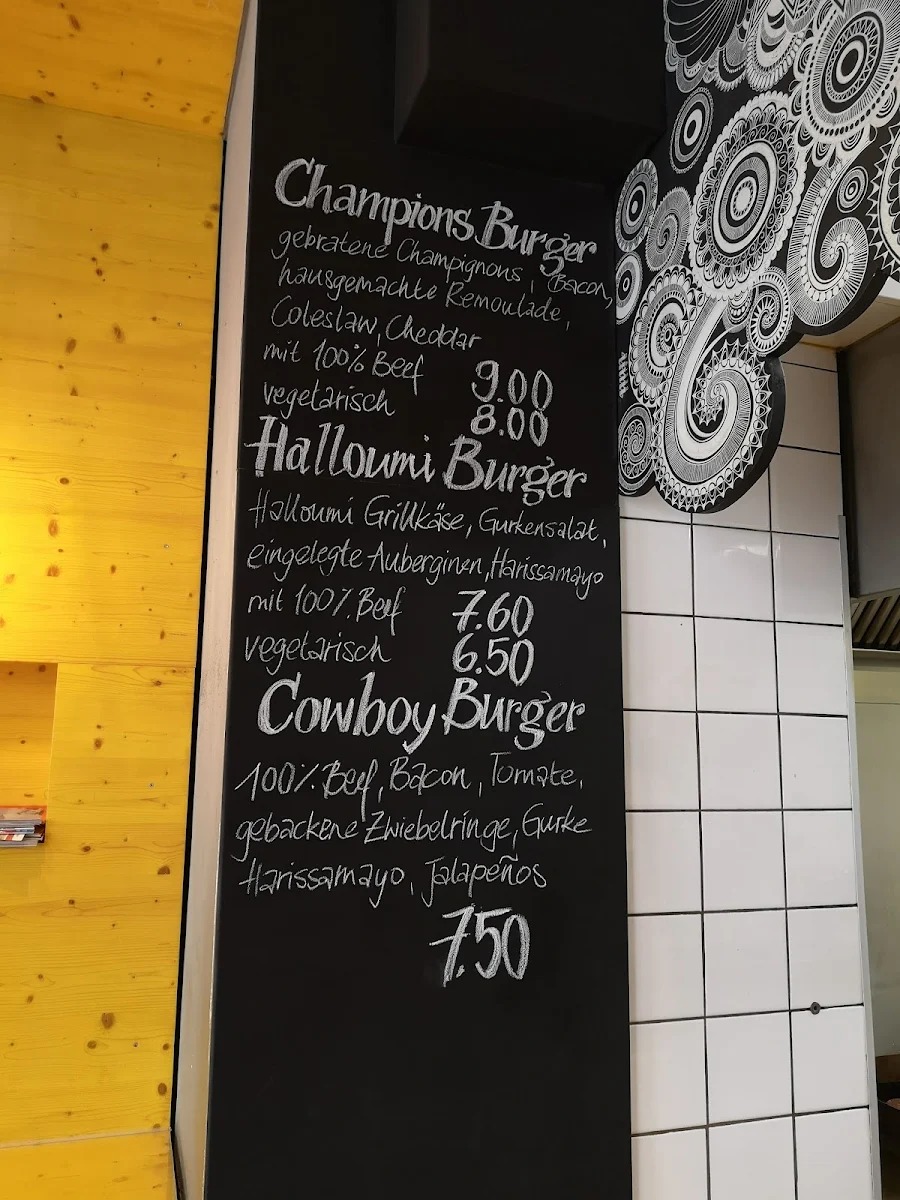 Champions Burger
gebratene Champignons, Bacon,
hausgemachte Remoulade,
Coleslaw, Cheddar
mit 100% Beef 9.00
vegetarisch 8.00
Halloumi Burger
Halloumi Grillkäse, Gurkensalat,
eingelegte Auberginen, Harissamayo
mit 100% Beef 7.60
vegetarisch 6.50
Cowboy Burger
100% Beef, Bacon, Tomate,
gebackene Zwiebelringe, Gurke
Harissamayo, Jalapeños
7.50